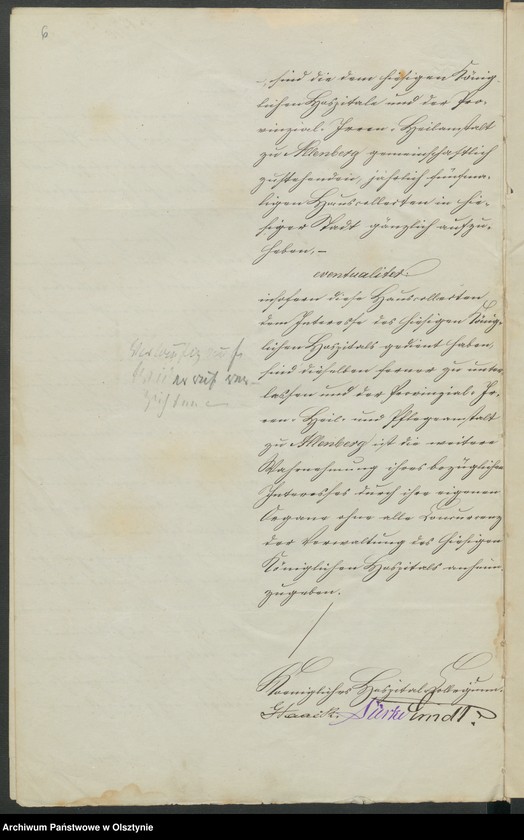 6
–, sind die dem hiesigen König-
lichen Hospitale und der Pro-
vinzial-Irren-Heilanstalt
zu Allenberg gemeinschaftlich
zustehenden, jährlich fünfma-
ligen Hauscollecten in hie-
siger Stadt gänzlich aufzu-
heben, –
eventualiter
insofern diese Hauscollecten
dem Interesse des hiesigen König-
lichen Hospitals gedient haben,
sind dieselben ferner zu unter-
lassen und der Provinzial-Ir-
ren-Heil- und Pflegeanstalt
zu Allenberg ist die weitere
Wahrnehmung ihres bezüglichen
Interesses durch ihre eigenen
Organe ohne alle Concurrenz
der Verwaltung des hiesigen
Königlichen Hospitals anheim
zugeben.
Koenigliches Hospital-Collegium.
Archiwum Państwowe w Olsztynie